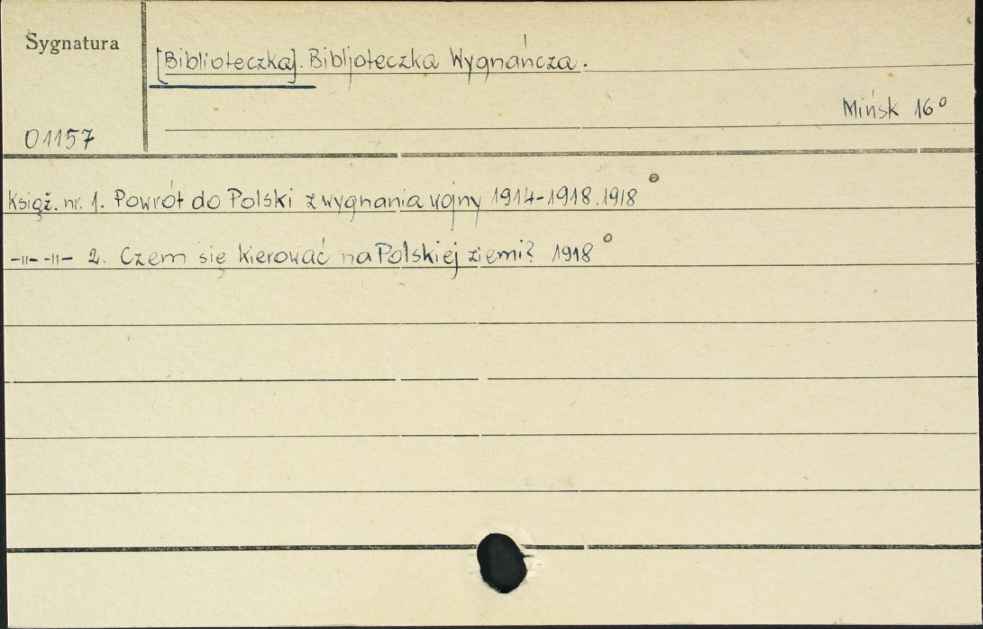 Sygnatura
[Biblioteczka]. Bibljoteczka Wygnańcza.
Mińsk 16°
01157
Książ. nr. 1. Powrót do Polski z wygnania wojny 1914-1918. 1918
-"- -"- 2. Czem się kierować na Polskiej ziemi? 1918